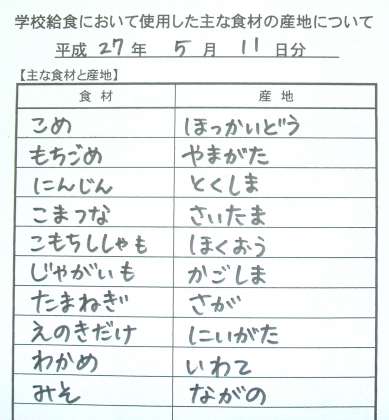 学校給食において使用した主な食材の産地について
平成 27 年 5 月 11 日分
【主な食材と産地】
食材 産地
こめ ほっかいどう
もちごめ やまがた
にんじん とくしま
こまつな さいたま
こもちししゃも ほくおう
じゃがいも かごしま
たまねぎ さが
えのきだけ にいがた
わかめ いわて
みそ ながの